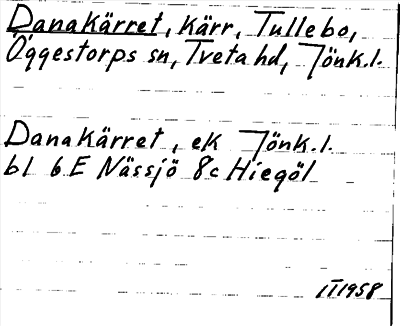 Danakärret, kärr, Tullebo,
Öggestorps sn, Tveta hd, Jönk.l.
Danakärret, ek Jönk.l.
bl 6E Nässjö 8c Hiegöl
II 1958